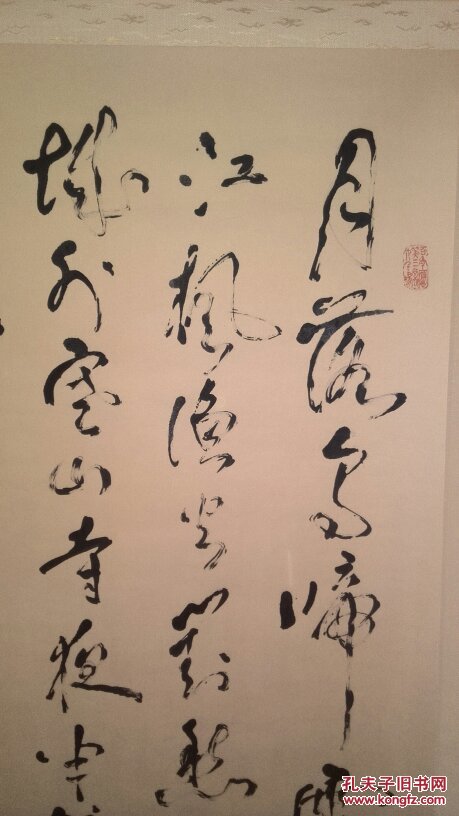 月落烏啼
江楓漁火對愁
城外寒山寺夜半
孔夫子旧书网
www.kongfz.com